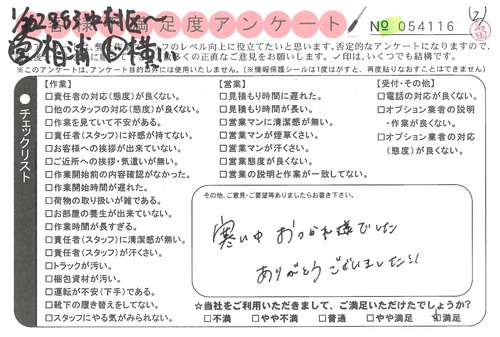 1/22 883 中村区〜
お客様満足度アンケート
No 054116
②
相浦
横
このアンケートは、弊社作業スタッフのレベル向上に役立てたいと思います。否定的なアンケートになりますので、
多くの正直なご意見をお願いします。✓印は、いくつでも結構です。
※このアンケートは、アンケート目的以外には使用いたしません。(※情報保護シールは1度はがすと、再度貼りなおすことはできません)
チェックリスト
【作業】
□責任者の対応(態度)が良くない。
□他のスタッフの対応(態度)が良くない。
□作業を見ていて不安がある。
□責任者(スタッフ)に好感が持てない。
□お客様への挨拶が出来ていない。
□ご近所への挨拶・気遣いが無い。
□作業開始前の内容確認がなかった。
□作業開始時間が遅れた。
□荷物の取り扱いが雑である。
□お部屋の養生が出来ていない。
□作業時間が長すぎる。
□責任者(スタッフ)に清潔感が無い。
□責任者(スタッフ)が汗くさい。
□トラックが汚い。
□梱包資材が汚い。
□運転が不安(下手)である。
□靴下の履き替えをしてない。
□スタッフにやる気がみられない。
【営業】
□見積もり時間に遅れた。
□見積もり時間が長い。
□営業マンに清潔感が無い。
□営業マンが煙草くさい。
□営業マンが汗くさい。
□営業態度が良くない。
□営業の説明と作業が一致してない。
【受付・その他】
□電話の対応が良くない。
□オプション業者の説明
・作業が良くない。
□オプション業者の対応
(態度)が良くない。
その他、ご意見・ご要望等ありましたらお書き下さい。
寒い中 おつかれ様でした
ありがとうございました!!
☆当社をご利用いただきまして、ご満足いただけたでしょうか?
□不満 □やや不満 □普通 □やや満足 ☑満足